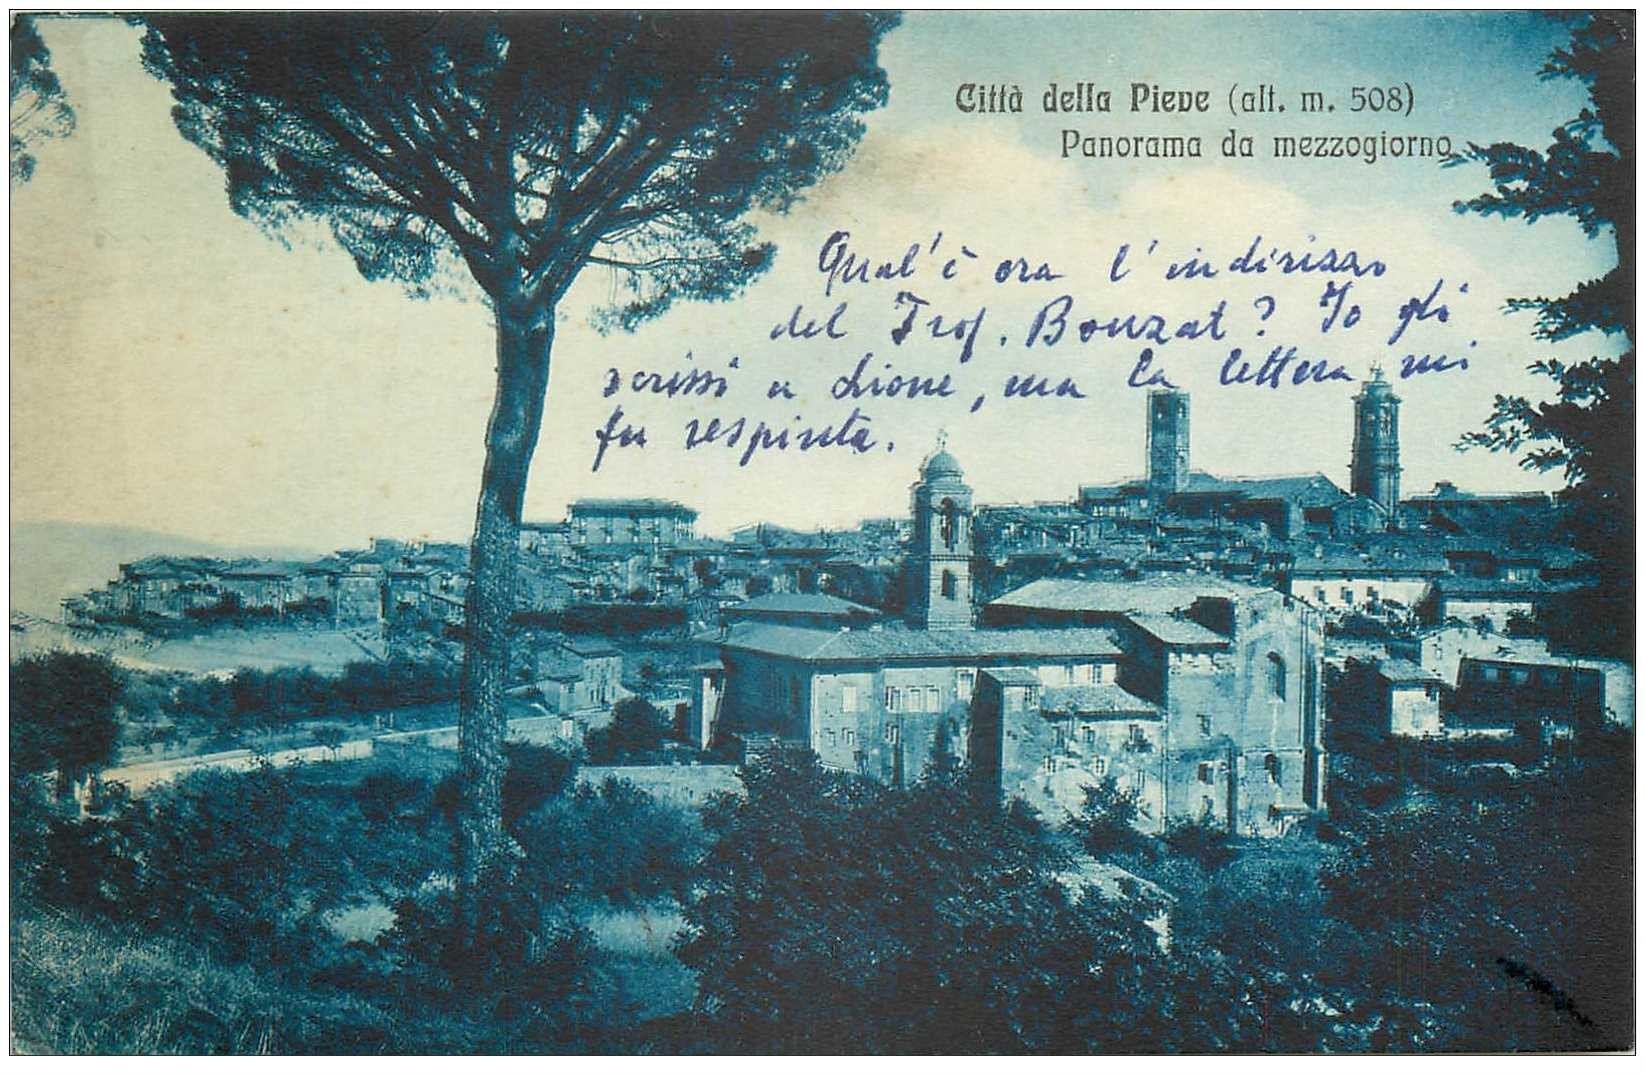 Città della Pieve (alt. m. 508)
Panorama da mezzogiorno
Qual'è ora l'indirizzo
del Prof. Bouzat? Io gli
scrissi a Lione, ma la lettera mi
fu respinta.